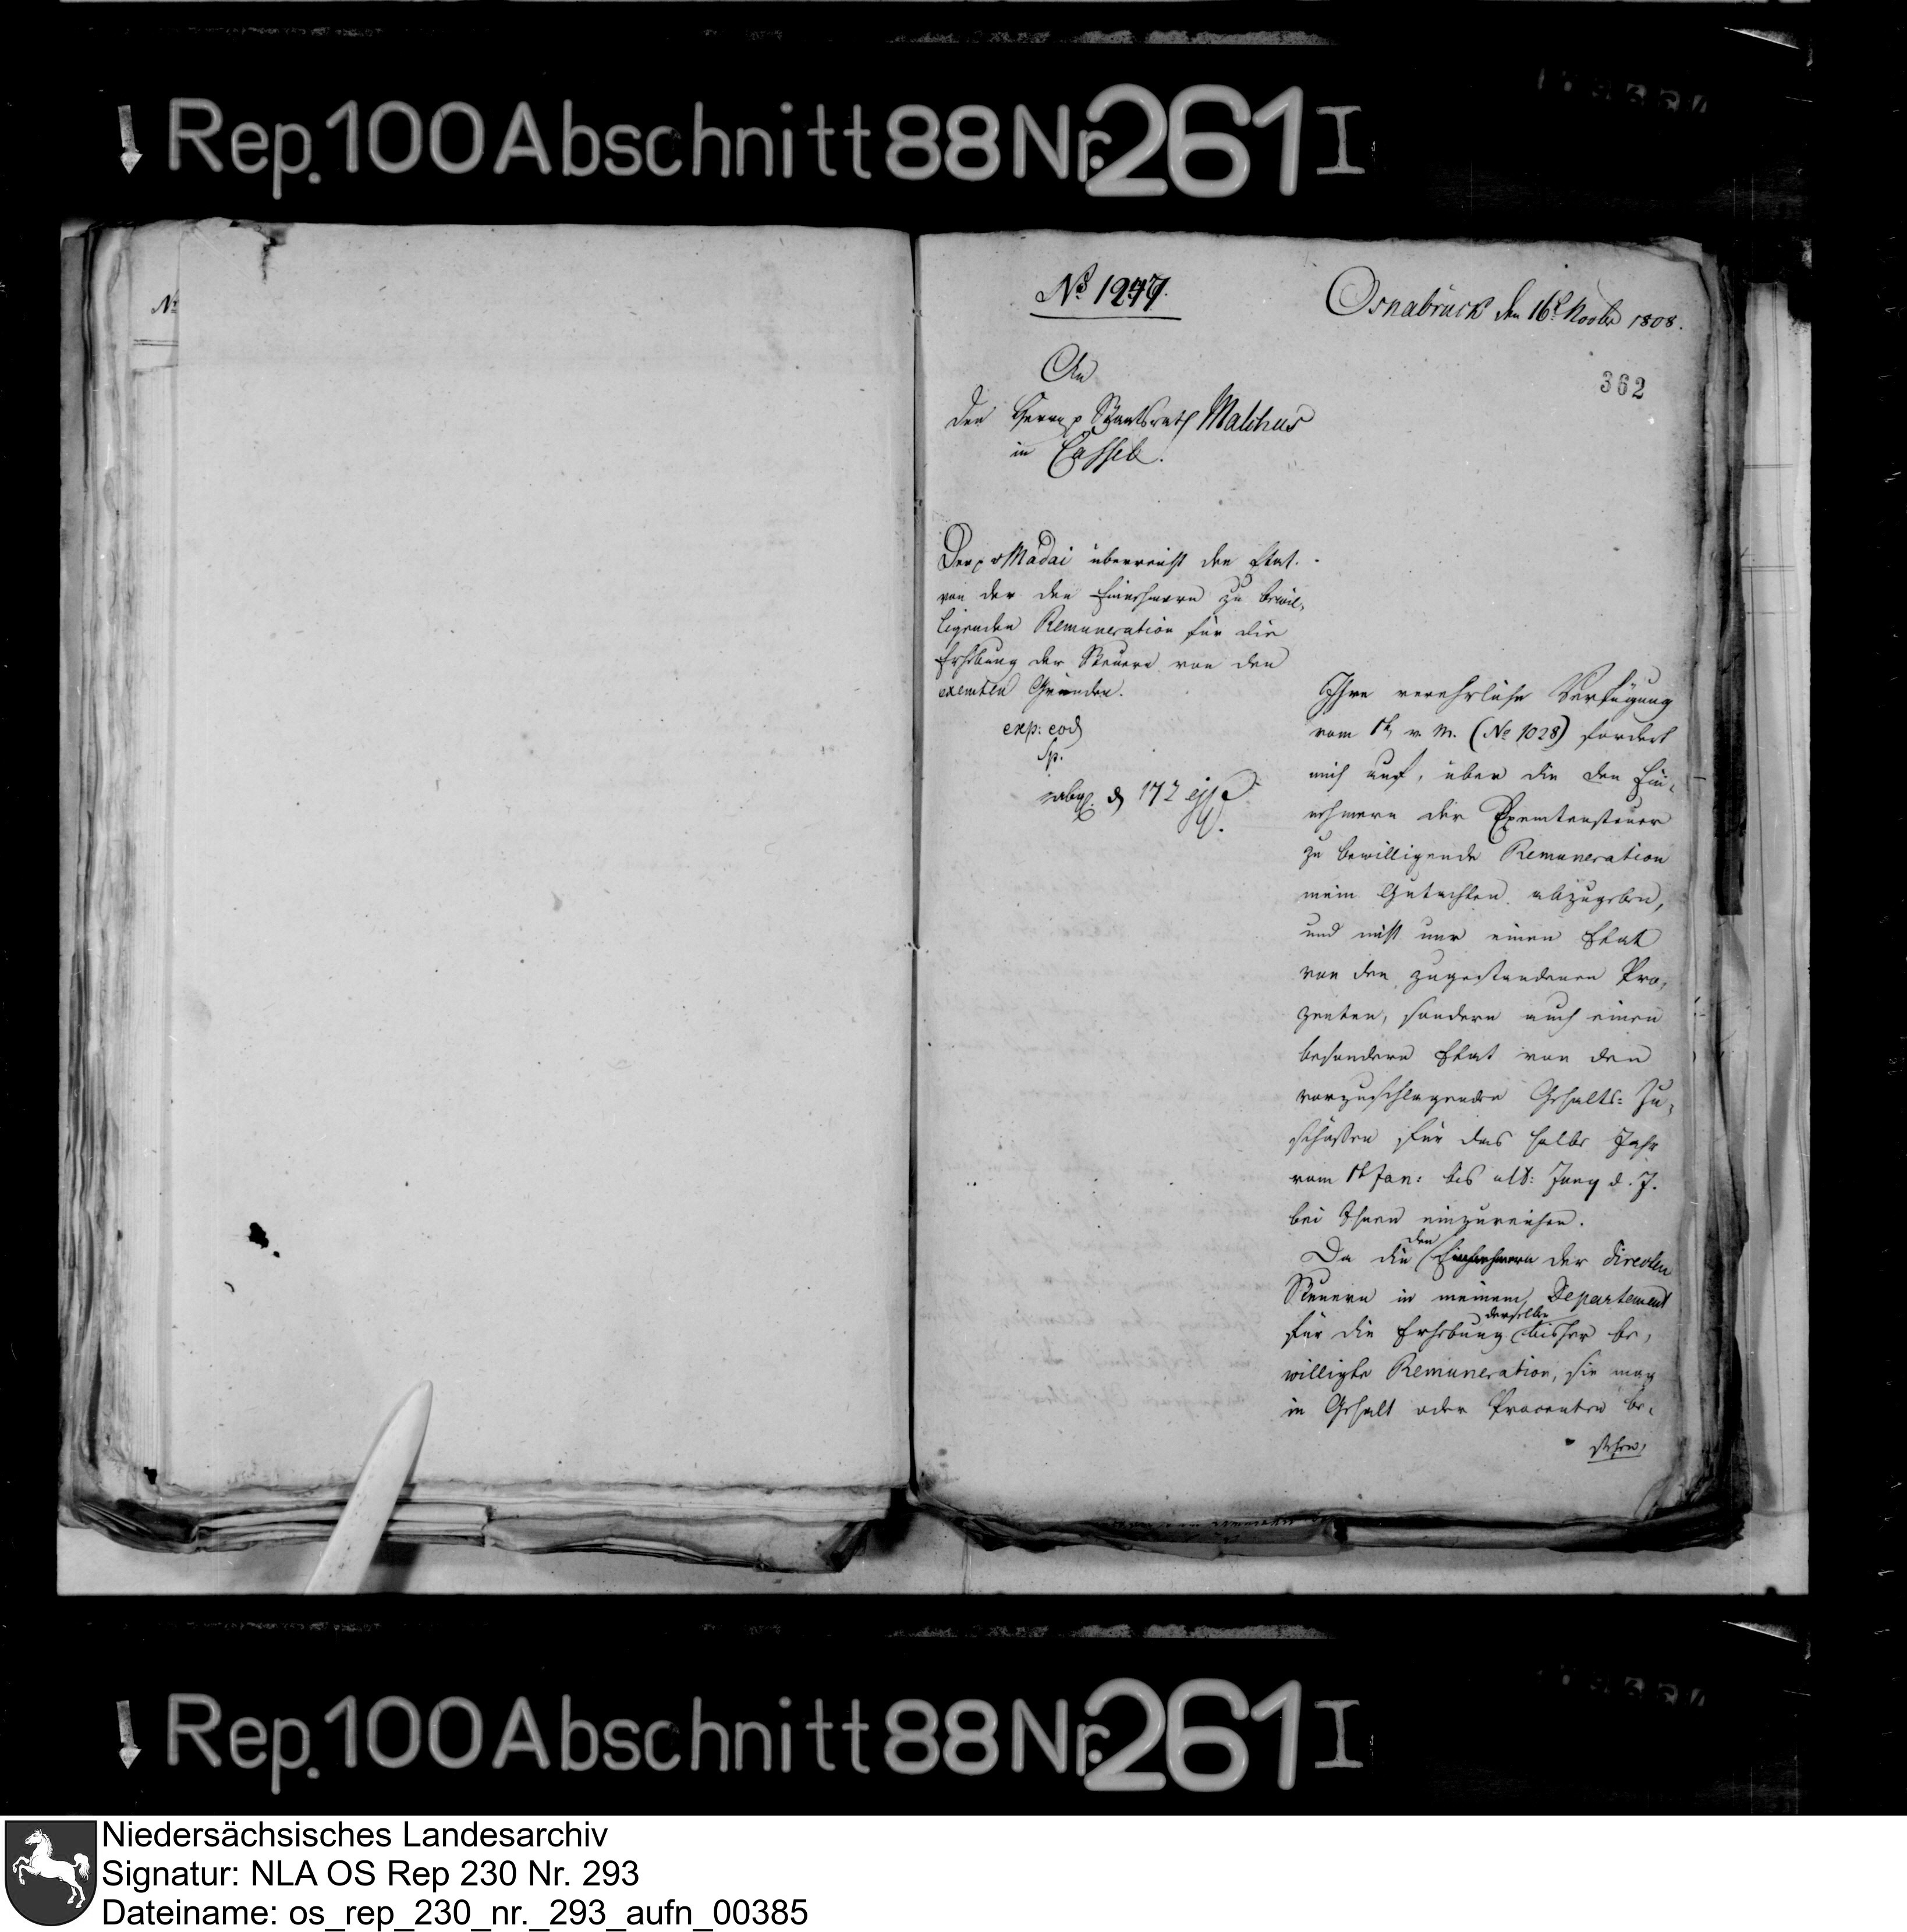 ↓ Rep. 100 Abschnitt 88 Nr. 261 I
Nr.
No 1277.
Osnabrück den 16t. Novbr 1808.
362
An
den Herrn p Staatsrath Malchus
in Cassel.
Der p v Madai überreicht den Etat
von der den Einnehmern zu bewil-
ligenden Remuneration für die
Erhebung der Steuern von den
exemten Gründen.
exp: eod
Sp.
abg. d 17t ejsd
Ihre verehrliche Verfügung
vom 1t v. M. (No 1028) fordert
mich auf, über die den Ein-
nehmern der Exemtensteuer
zu bewilligende Remuneration
mein Gutachten abzugeben,
und nicht nur einen Etat
von den zugestandenen Pro-
zenten, sondern auch einen
besondern Etat von den
vorzuschlagenden Gehalts-Zu-
schüssen für das halbe Jahr
vom 1t Jan: bis ult: Juny d. J.
bei Ihnen einzureichen.
Da die den Einnehmern der directen
Steuern in meinem Departement
für die Erhebung derselben bisher be-
willigte Remuneration, sie mag
in Gehalt oder Procenten be-
stehen,
↓ Rep. 100 Abschnitt 88 Nr. 261 I
Niedersächsisches Landesarchiv
Signatur: NLA OS Rep 230 Nr. 293
Dateiname: os_rep_230_nr._293_aufn_00385